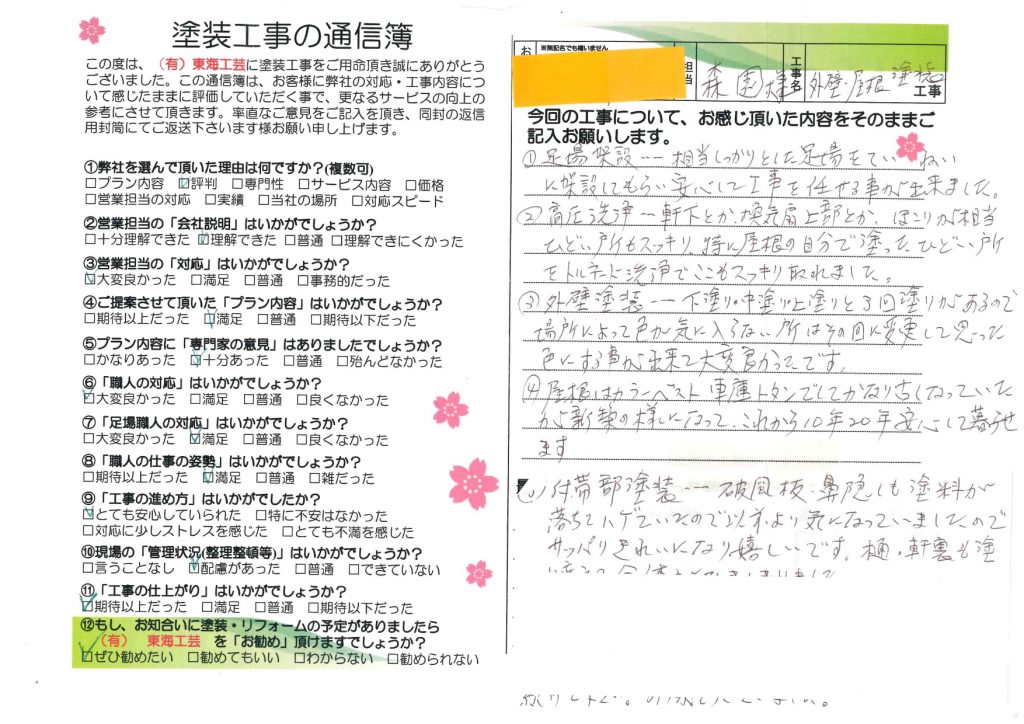 塗装工事の通信簿
この度は、（有）東海工芸に塗装工事をご用命頂き誠にありがとう
ございました。この通信簿は、お客様に弊社の対応・工事内容につ
いて感じたままに評価していただく事で、更なるサービスの向上の
参考にさせて頂きます。率直なご意見をご記入を頂き、同封の返信
用封筒にてご返送下さいます様お願い申し上げます。
①弊社を選んで頂いた理由は何ですか？(複数可)
□プラン内容 ☑評判 □専門性 □サービス内容 □価格
□営業担当の対応 □実績 □当社の場所 □対応スピード
②営業担当の「会社説明」はいかがでしょうか？
□十分理解できた ☑理解できた □普通 □理解できにくかった
③営業担当の「対応」はいかがでしょうか？
☑大変良かった □満足 □普通 □事務的だった
④ご提案させて頂いた「プラン内容」はいかがでしょうか？
□期待以上だった ☑満足 □普通 □期待以下だった
⑤プラン内容に「専門家の意見」はありましたでしょうか？
□かなりあった ☑十分あった □普通 □殆んどなかった
⑥「職人の対応」はいかがでしょうか？
☑大変良かった □満足 □普通 □良くなかった
⑦「足場職人の対応」はいかがでしょうか？
□大変良かった ☑満足 □普通 □良くなかった
⑧「職人の仕事の姿勢」はいかがでしょうか？
□期待以上だった ☑満足 □普通 □雑だった
⑨「工事の進め方」はいかがでしたか？
☑とても安心していられた □特に不安はなかった
□対応に少しストレスを感じた □とても不満を感じた
⑩現場の「管理状況(整理整頓等)」はいかがでしょうか？
□言うことなし ☑配慮があった □普通 □できていない
⑪「工事の仕上がり」はいかがでしょうか？
☑期待以上だった □満足 □普通 □期待以下だった
⑫もし、お知合いに塗装・リフォームの予定がありましたら
（有） 東海工芸 を「お勧め」頂けますでしょうか？
☑ぜひ勧めたい □勧めてもいい □わからない □勧められない
お ※無記名でも構いません 担当 森園 工事名 外壁・屋根塗装工事
今回の工事について、お感じ頂いた内容をそのままご
記入お願いします。
①足場架設……相当しっかりとした足場をていねい
に架設してもらい安心して工事を任せる事が出来ました。
②高圧洗浄ー軒下とか換気扇上部とか、ほこりが相当
ひどい所もスッキリ、特に屋根の自分で塗ったひどい所
をトルネード洗浄でここもスッキリ取れました。
③外壁塗装……下塗り・中塗り・上塗りと3回塗りがあるので
場所によって色が気に入らない所はその回に変更して思った
色にする事が出来て大変良かったです。
④屋根はカラーベスト 車庫トタンでしてかなり古くなっていた
が新築の様になって、これから10年20年安心して暮らせ
ます
付帯部塗装……破風板・鼻隠しも塗料が
落ちてハゲていたので以前より気になっていましたので
サッパリきれいになり嬉しいです。樋・軒裏も塗